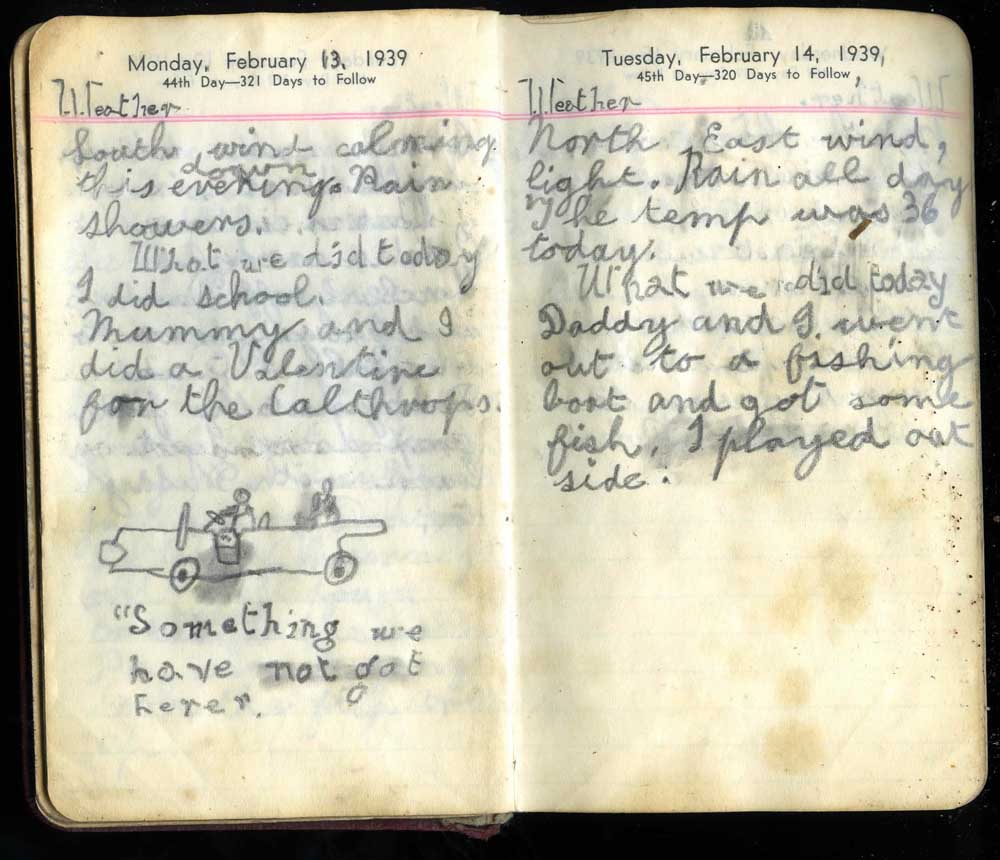 Monday, February 13, 1939
44th Day—321 Days to Follow
Weather
South wind calming
down
this evening. Rain
showers.
What we did today
I did school.
Mummy and I
did a Valentine
for the Calthrops.
"Something we
have not got
herer.
Tuesday, February 14, 1939
45th Day—320 Days to Follow
Weather
North East wind,
light. Rain all day
The temp was 36
today.
What we did today
Daddy and I went
out to a fishing
boat and got some
fish. I played out
side.